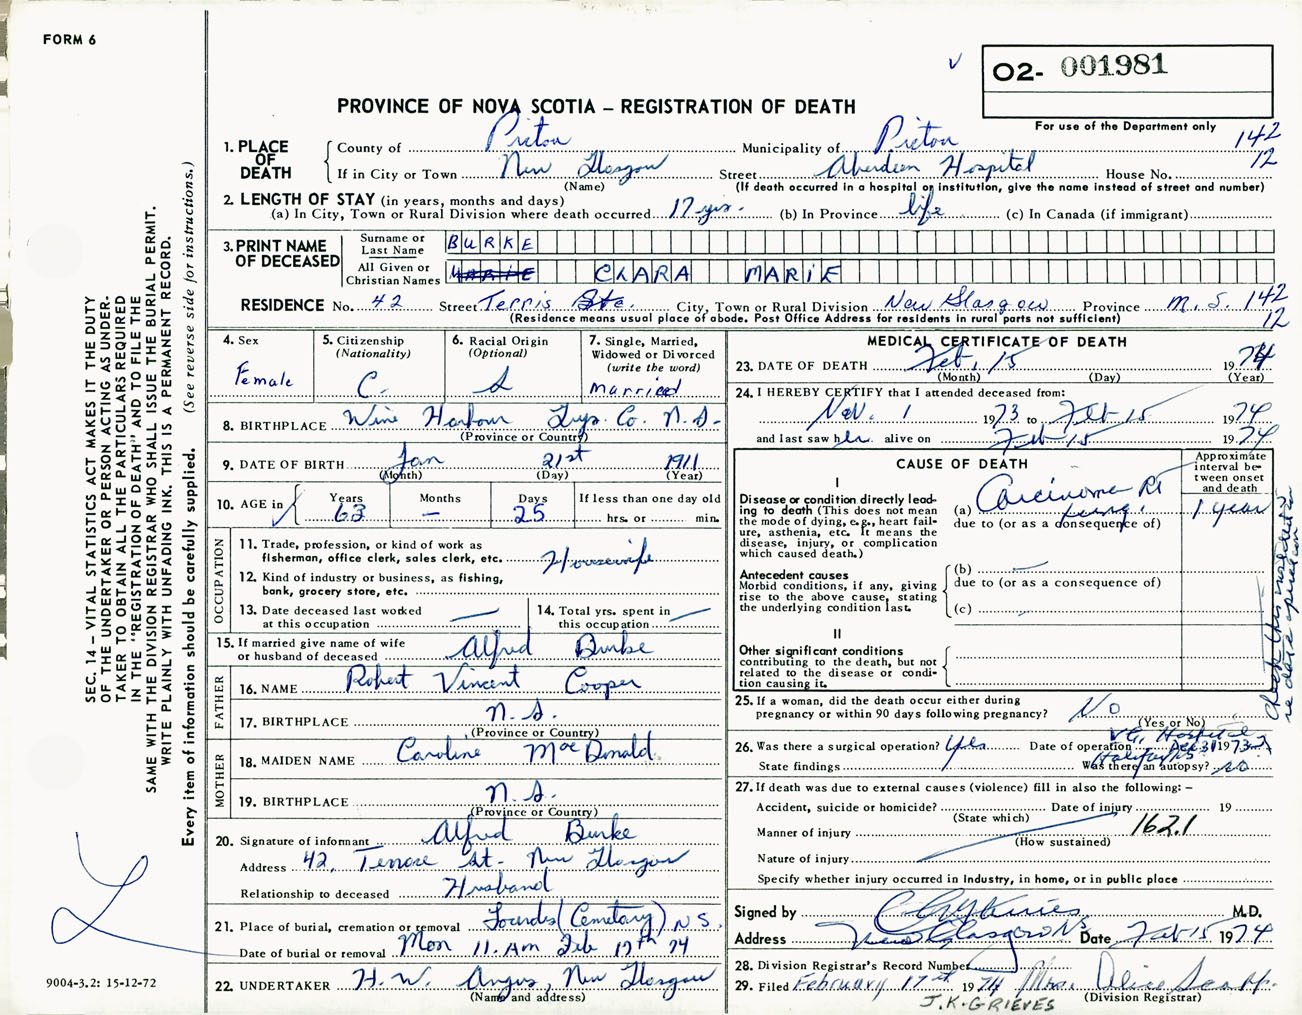 FORM 6
O2- 001981
PROVINCE OF NOVA SCOTIA – REGISTRATION OF DEATH
For use of the Department only
142
12
1. PLACE OF DEATH
County of Pictou Municipality of Pictou
If in City or Town New Glasgow Street Aberdeen Hospital House No.
(Name) (If death occurred in a hospital or institution, give the name instead of street and number)
2. LENGTH OF STAY (in years, months and days)
(a) In City, Town or Rural Division where death occurred 17 yrs. (b) In Province life (c) In Canada (if immigrant)
3. PRINT NAME OF DECEASED
Surname or Last Name BURKE
All Given or Christian Names MARIE CLARA MARIE
RESIDENCE No. 42 Street City, Town or Rural Division New Glasgow Province N. S. 142
(Residence means usual place of abode. Post Office Address for residents in rural parts not sufficient) 12
4. Sex
Female
5. Citizenship (Nationality)
C.
6. Racial Origin (Optional)
7. Single, Married, Widowed or Divorced (write the word)
Married
8. BIRTHPLACE Wine Harbour Guys. Co. N. S.
(Province or Country)
9. DATE OF BIRTH Jan 21st 1911
(Month) (Day) (Year)
10. AGE in Years Months Days If less than one day old
63 – 25 hrs. or min.
OCCUPATION
11. Trade, profession, or kind of work as fisherman, office clerk, sales clerk, etc. Housewife
12. Kind of industry or business, as fishing, bank, grocery store, etc.
13. Date deceased last worked at this occupation
14. Total yrs. spent in this occupation
15. If married give name of wife or husband of deceased Alfred Burke
FATHER
16. NAME Robert Vincent Cooper
17. BIRTHPLACE N. S.
(Province or Country)
MOTHER
18. MAIDEN NAME Caroline MacDonald
19. BIRTHPLACE N. S.
(Province or Country)
20. Signature of informant Alfred Burke
Address 42, St. New Glasgow
Relationship to deceased Husband
21. Place of burial, cremation or removal Lourdes (Cemetary) N.S.
Date of burial or removal Mon 11. AM Feb 17th 74
22. UNDERTAKER H. W. Angus, New Glasgow
(Name and address)
MEDICAL CERTIFICATE OF DEATH
23. DATE OF DEATH Feb. 15 1974
(Month) (Day) (Year)
24. I HEREBY CERTIFY that I attended deceased from:
Nov. 1 1973 to Feb 15 1974
and last saw her alive on Feb 15 1974
CAUSE OF DEATH
Approximate interval between onset and death
I
Disease or condition directly leading to death (This does not mean the mode of dying, e.g., heart failure, asthenia, etc. It means the disease, injury, or complication which caused death.)
(a) Carcinoma Rt lung. 1 year
due to (or as a consequence of)
Antecedent causes
Morbid conditions, if any, giving rise to the above cause, stating the underlying condition last.
(b)
due to (or as a consequence of)
(c)
II
Other significant conditions
contributing to the death, but not related to the disease or condition causing it.
25. If a woman, did the death occur either during pregnancy or within 90 days following pregnancy? No
(Yes or No)
V.G. Hospital
26. Was there a surgical operation? Yes Date of operation Dec 31 1973
Halifax NS
State findings Was there an autopsy? No
27. If death was due to external causes (violence) fill in also the following: –
Accident, suicide or homicide? Date of injury 19
(State which)
Manner of injury 162.1
(How sustained)
Nature of injury
Specify whether injury occurred in Industry, in home, or in public place
Signed by M.D.
Address New Glasgow NS Date Feb 15 1974
28. Division Registrar's Record Number
29. Filed February 17th 1974 Mrs. Alice
(Division Registrar)
J.K. GRIEVES
SEC. 14 – VITAL STATISTICS ACT MAKES IT THE DUTY
OF THE UNDERTAKER OR PERSON ACTING AS UNDER-
TAKER TO OBTAIN ALL THE PARTICULARS REQUIRED
IN THE "REGISTRATION OF DEATH" AND TO FILE THE
SAME WITH THE DIVISION REGISTRAR WHO SHALL ISSUE THE BURIAL PERMIT.
WRITE PLAINLY WITH UNFADING INK. THIS IS A PERMANENT RECORD.
Every item of information should be carefully supplied. (See reverse side for instructions.)
9004-3.2: 15-12-72